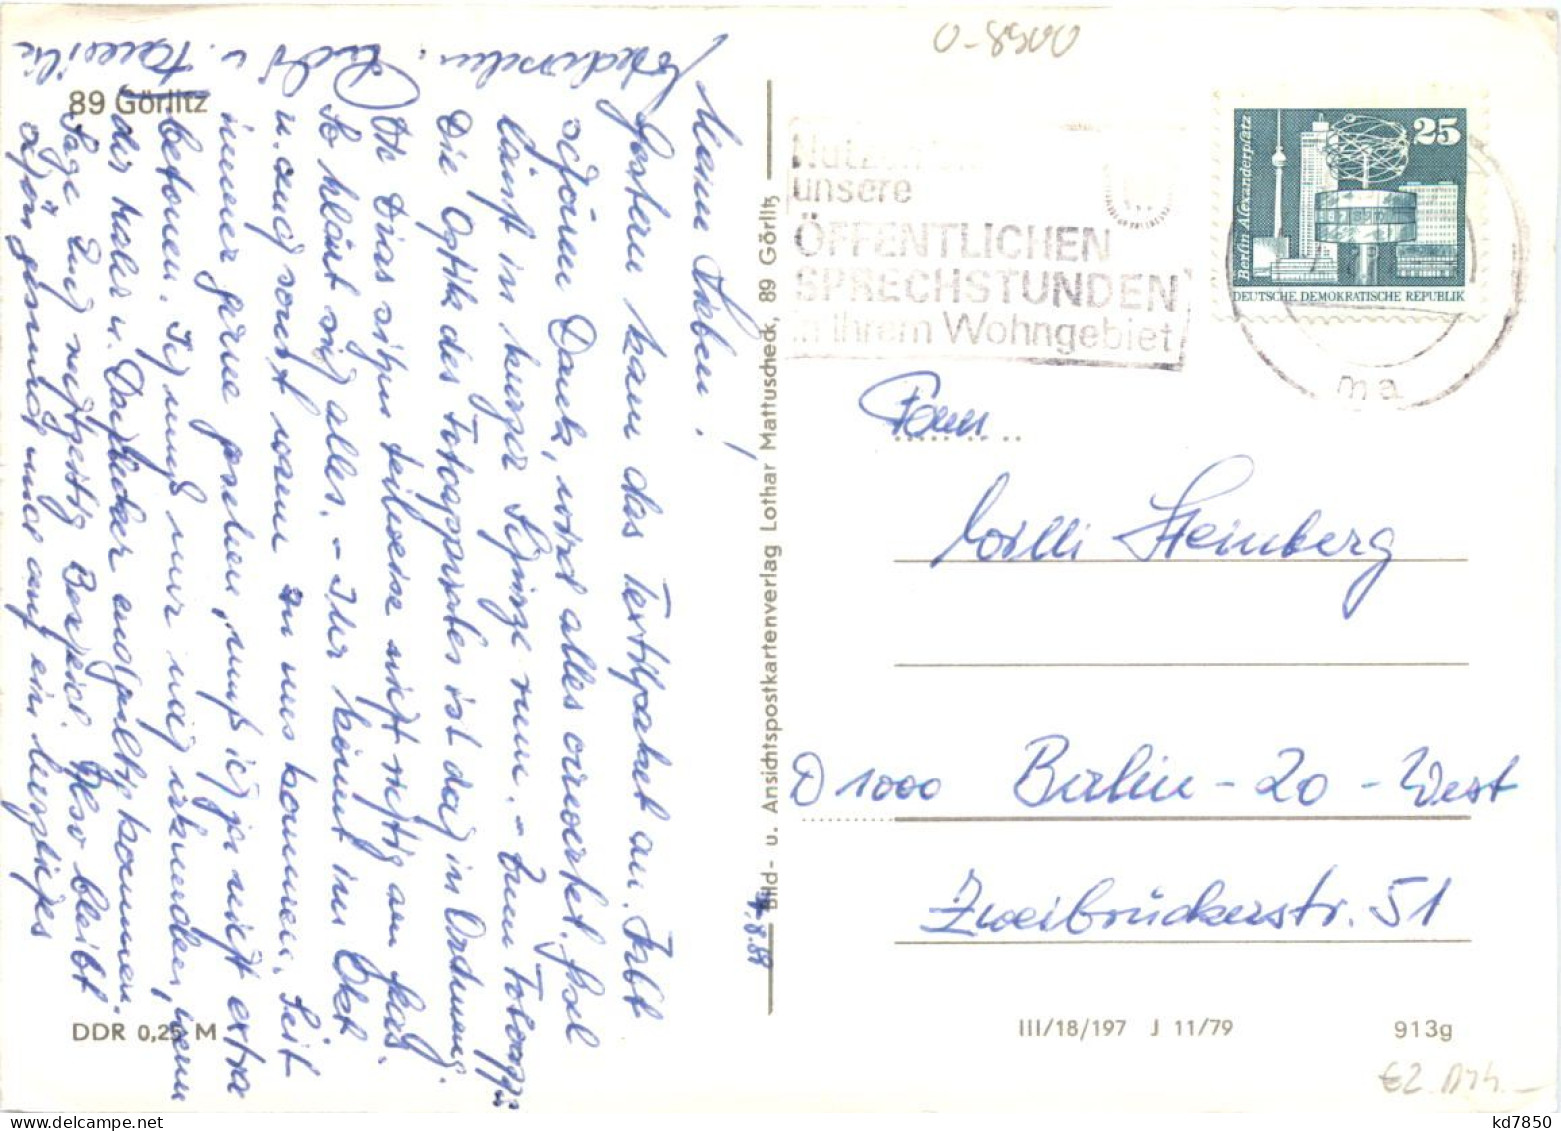 0-8900
89 Görlitz
Meine Lieben!
Gestern kam das Textilpaket an. Habt
schönen Dank, wird alles verwertet.
läuft in kurzer Hose
Die Optik des Fotoapparates ist doch in Ordnung.
Die Dias teilweise nicht richtig
So klärt sich alles. – Ihr könnt im Okt
u. auch sonst wann zu uns kommen. Seit
immer gerne gesehen, muß ich ja nicht extra
betonen. Ich muß nur noch erkunden, wenn
der Maler u. Dachdecker endgültig kommen.
Sage Euch rechtzeitig Bescheid. Also bleibt
schön gesund und auf ein
Wiedersehen.
u. Familie
4.8.88
Bild- u. Ansichtspostkartenverlag Lothar Mattuscheck, 89 Görlitz
Nutzen Sie
unsere
ÖFFENTLICHEN
SPRECHSTUNDEN
in Ihrem Wohngebiet
25
Berlin, Alexanderplatz
DEUTSCHE DEMOKRATISCHE REPUBLIK
ma
Fam.
Willi Steinberg
D 1000 Berlin-20-West
Zweibrückerstr. 51
DDR 0,25 M
III/18/197 J 11/79
913g
€2
kd7850